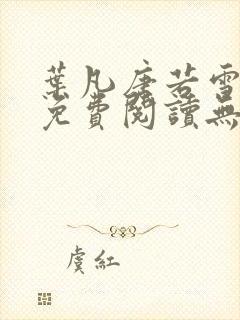 葉凡唐若雪
免費閱讀無
虞紅